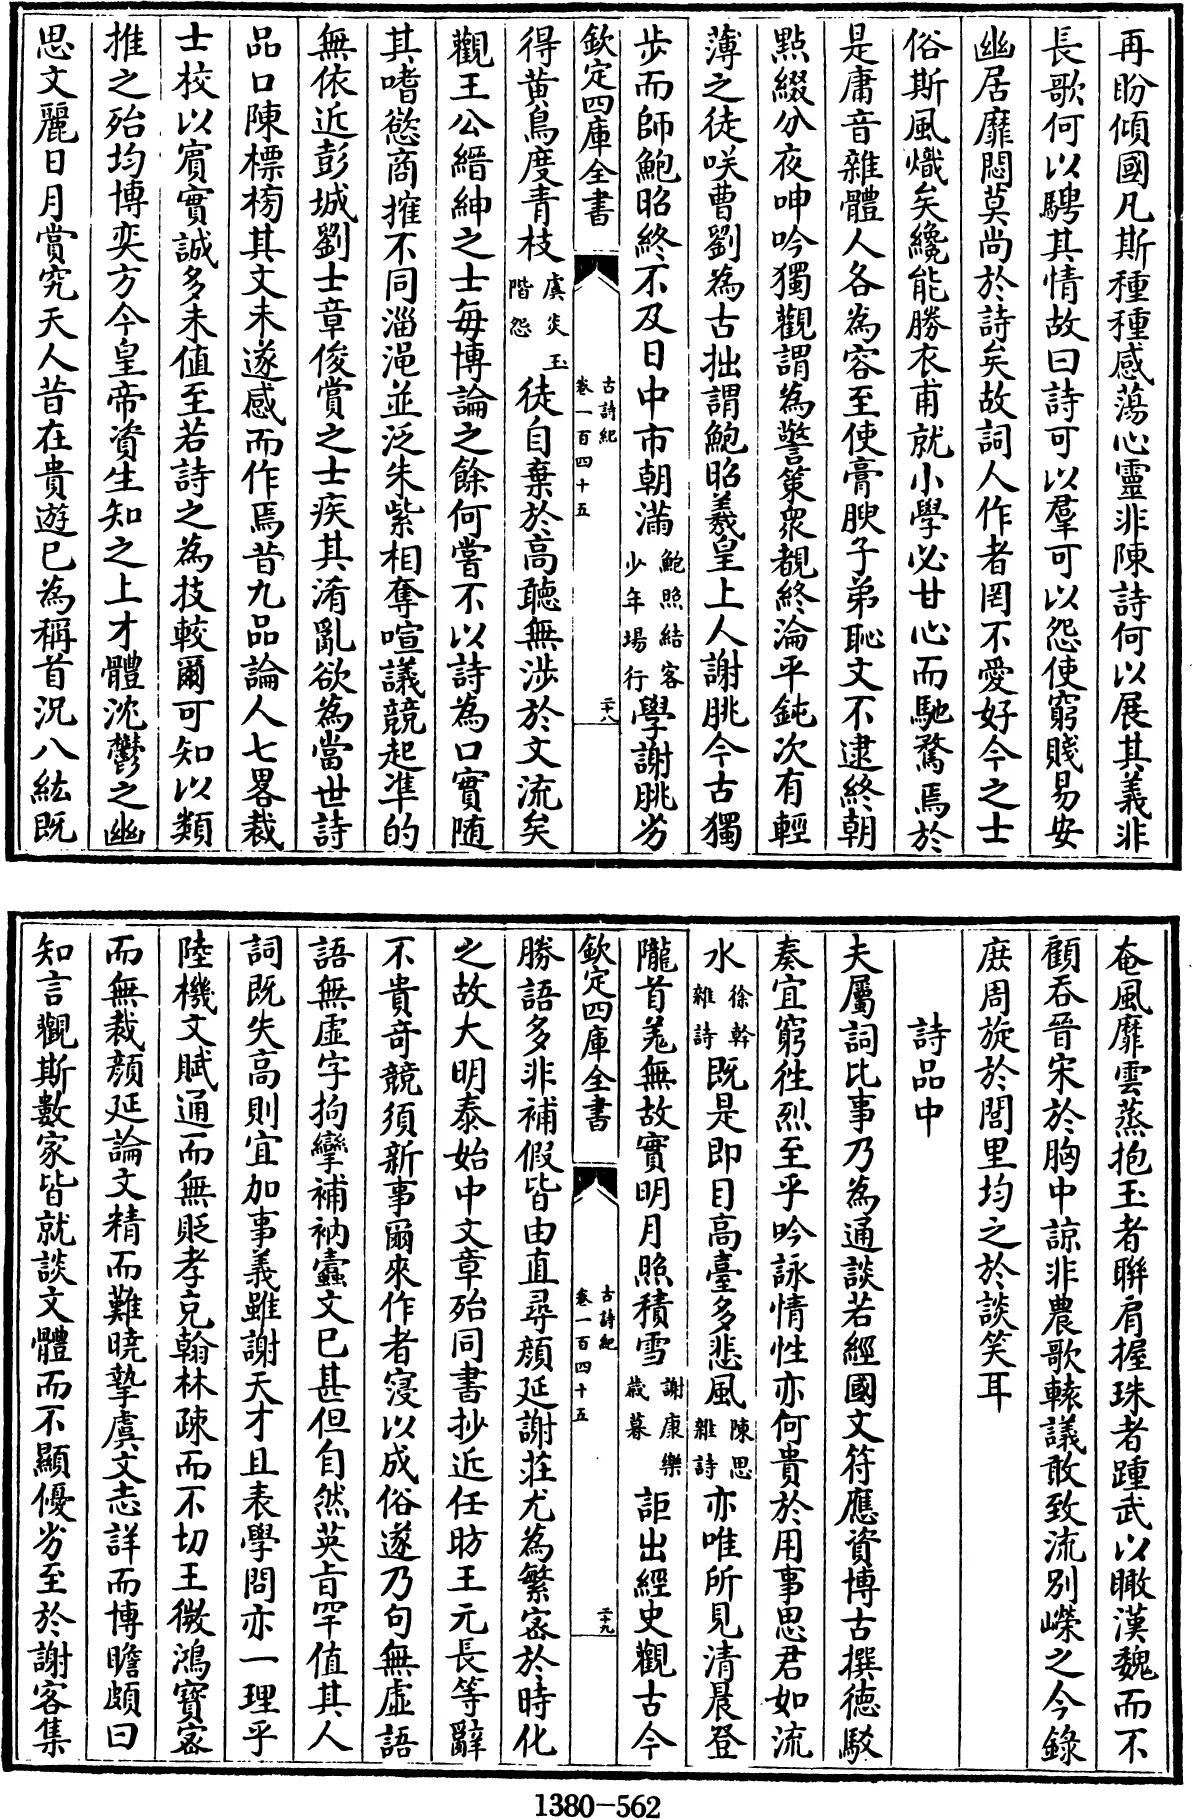 再盼傾國凡斯種種感蕩心靈非陳詩何以展其義非
長歌何以騁其情故曰詩可以羣可以怨使窮賤易安
幽居靡悶莫尚於詩矣故詞人作者罔不愛好今之士
俗斯風熾矣纔能勝衣甫就小學必甘心而馳騖焉於
是庸音雜體人各為容至使膏腴子弟恥文不逮終朝
點綴分夜呻吟獨觀謂為警策衆覩終淪平鈍次有輕
薄之徒咲曹劉為古拙謂鮑昭羲皇上人謝脁今古獨
步而師鮑昭終不及日中市朝滿鮑照結客少年場行學謝脁劣
欽定四庫全書 古詩紀 卷一百四十五 二十八
得黄鳥度青枝虞炎玉階怨徒自棄於高聴無涉於文流矣
觀王公縉紳之士毎博論之餘何嘗不以詩為口實随
其嗜慾商搉不同淄澠並泛朱紫相奪喧議競起凖的
無依近彭城劉士章俊賞之士疾其淆亂欲為當世詩
品口陳標榜其文未遂感而作焉昔九品論人七畧裁
士校以賔實誠多未值至若詩之為技較爾可知以類
推之殆均博奕方今皇帝資生知之上才體沈鬱之幽
思文麗日月賞究天人昔在貴遊已為稱首況八紘既
奄風靡雲蒸抱玉者聯肩握珠者踵武以瞰漢魏而不
顧吞晉宋於胸中諒非農歌轅議敢致流別嶸之今錄
庶周旋於閭里均之於談笑耳
詩品中
夫屬詞比事乃為通談若經國文符應資博古撰徳駁
奏宜窮徃烈至乎吟詠情性亦何貴於用事思君如流
水徐幹雜詩既是即目高臺多悲風陳思雜詩亦唯所見清晨登
隴首羌無故實明月照積雪謝康樂歲暮詎出經史觀古今
欽定四庫全書 古詩紀 卷一百四十五 二十九
勝語多非補假皆由直尋顔延謝莊尤為繁宻於時化
之故大明泰始中文章殆同書抄近任昉王元長等辭
不貴竒競須新事爾來作者寖以成俗遂乃句無虛語
語無虛字拘攣補衲蠹文已甚但自然英旨罕值其人
詞既失高則宜加事義雖謝天才且表學問亦一理乎
陸機文賦通而無貶孝克翰林疎而不切王微鴻寳宻
而無裁顔延論文精而難曉摯虞文志詳而博贍頗曰
知言觀斯數家皆就談文體而不顯優劣至於謝客集
1380-562